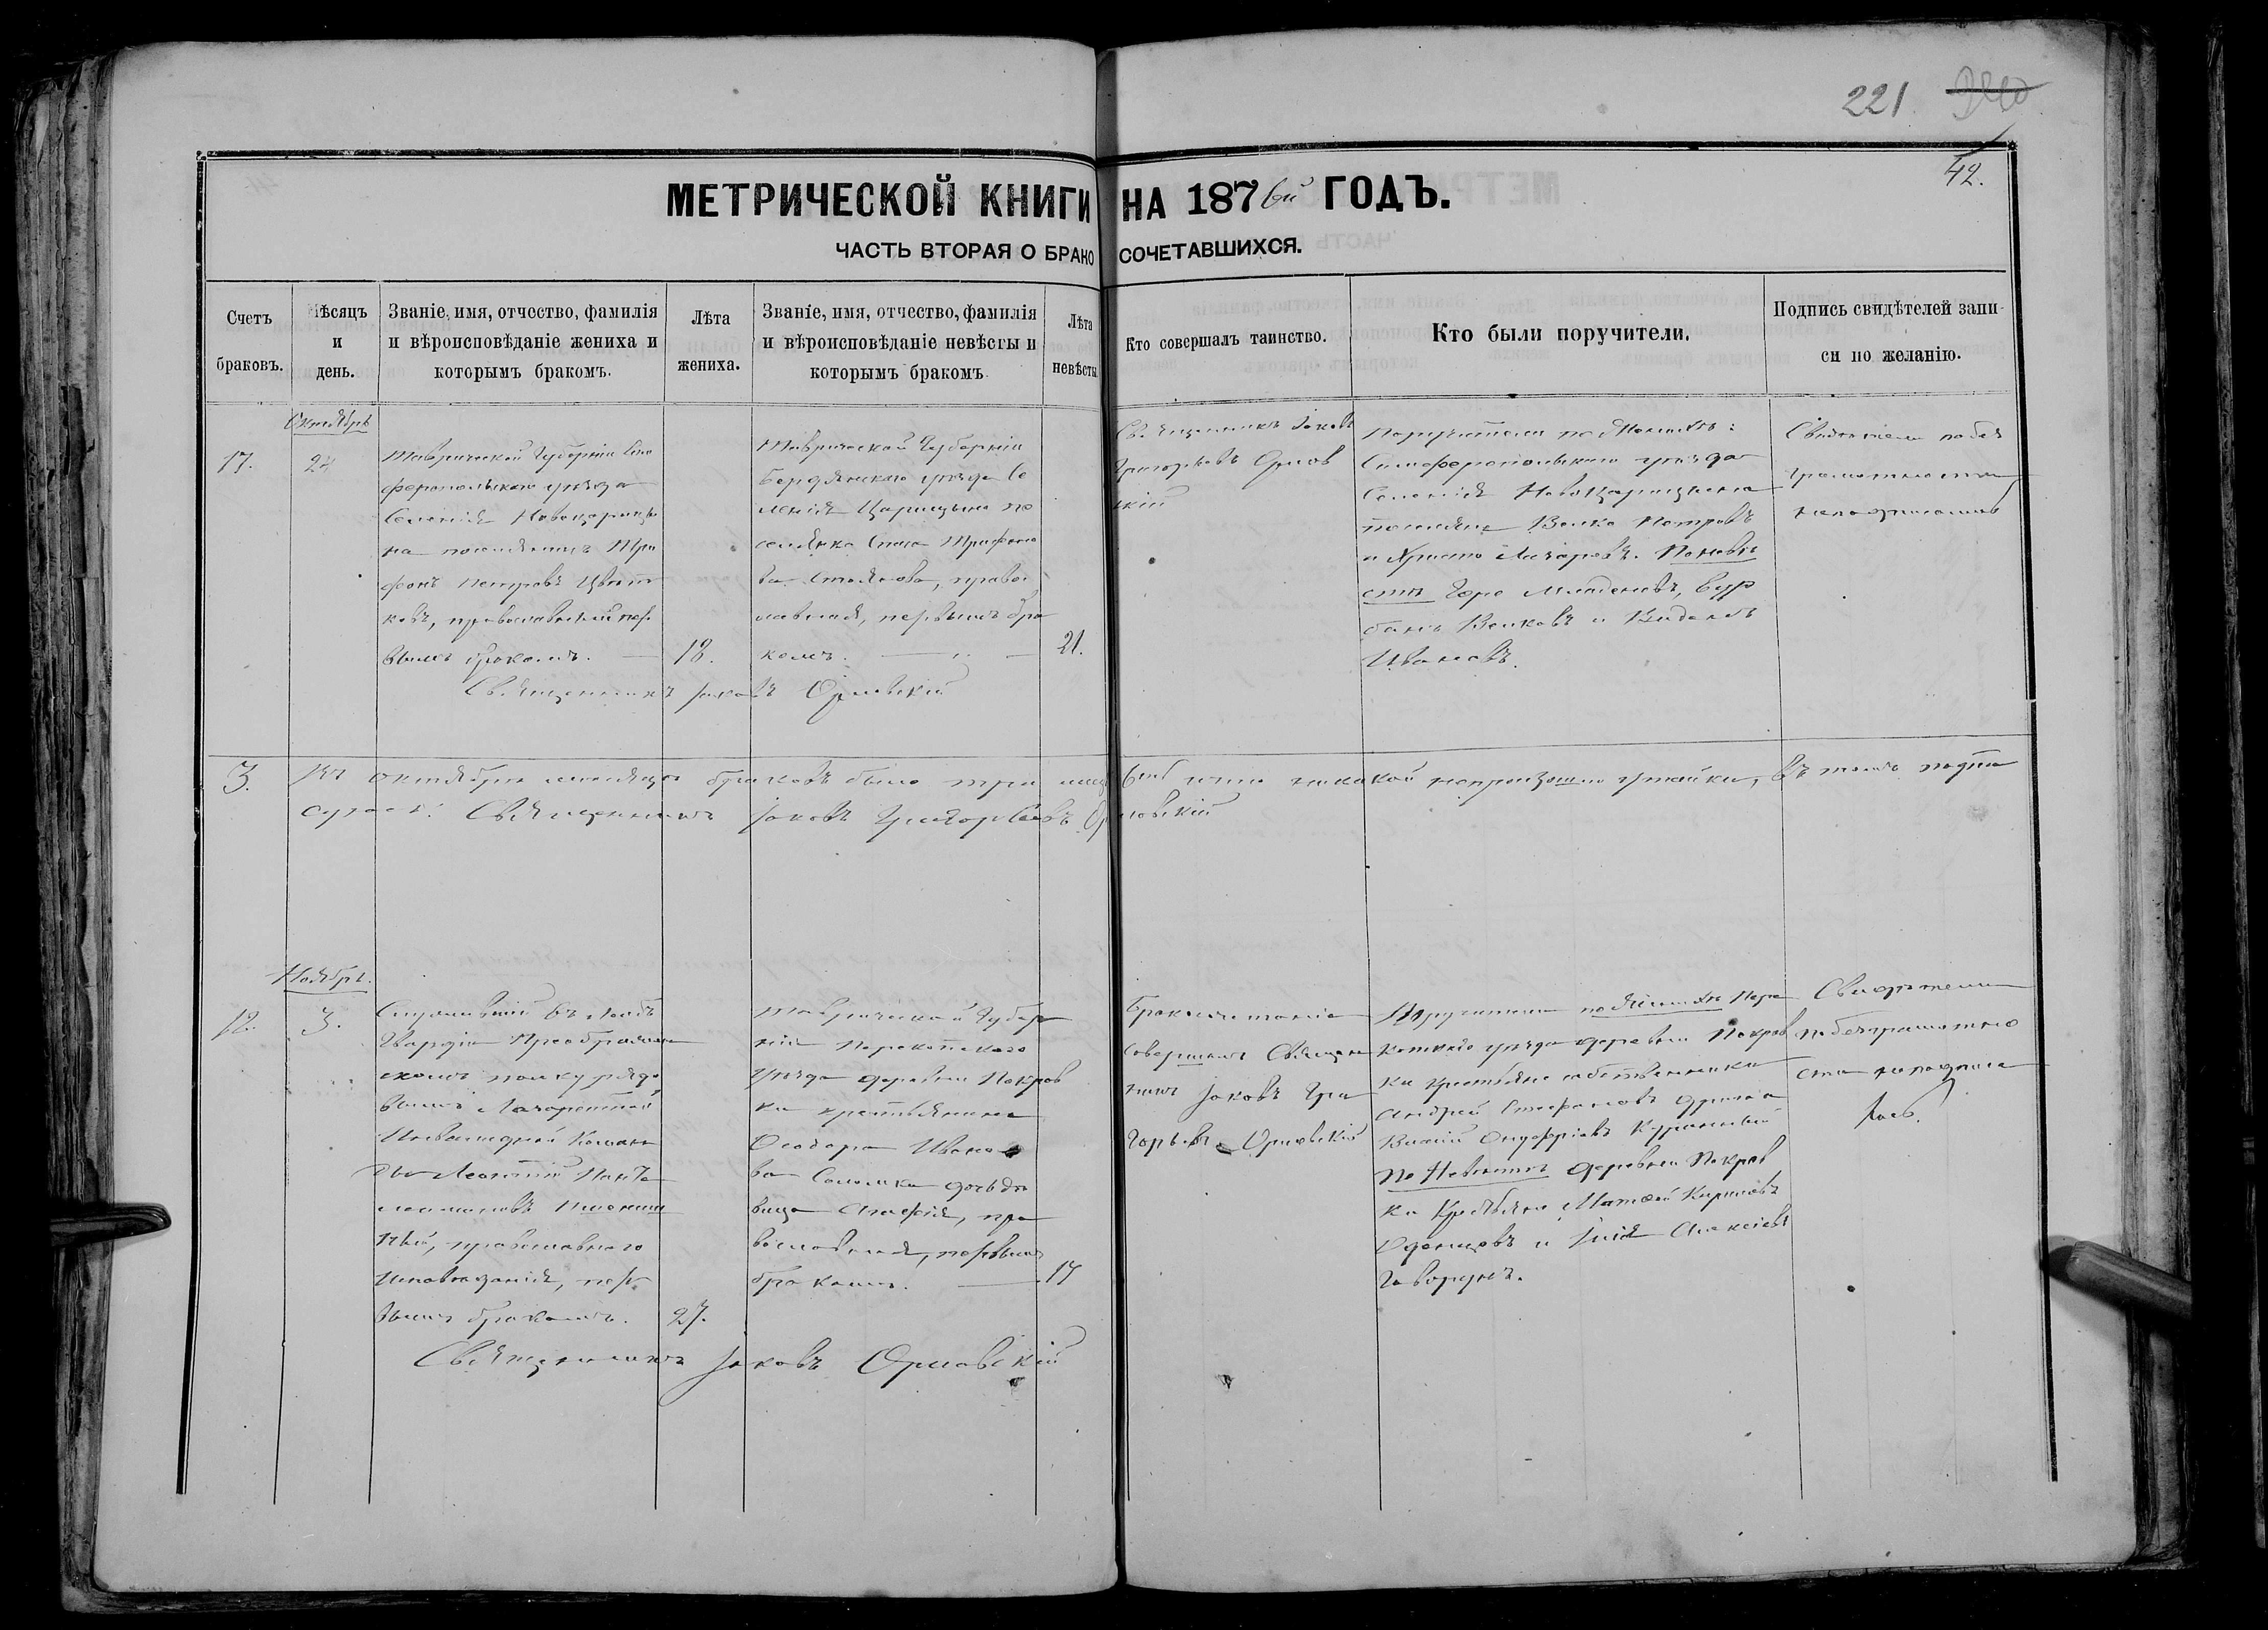 221 240
42.
МЕТРИЧЕСКОЙ КНИГИ НА 1876й ГОДЪ.
ЧАСТЬ ВТОРАЯ О БРАКОСОЧЕТАВШИХСЯ.
Счетъ браковъ.
Мѣсяцъ и день.
Званіе, имя, отчество, фамилія
и вѣроисповѣданіе жениха и
которымъ бракомъ.
Лѣта жениха.
Званіе, имя, отчество, фамилія
и вѣроисповѣданіе невѣсты и
которымъ бракомъ
Лѣта невѣсты
Кто совершалъ таинство.
Кто были поручители.
Подпись свидѣтелей запи-
си по желанію.
Октябрь
17.
24
Таврической Губерніи Сим
феропольскаго уѣзда
Селенія Новоцарицы
на поселянинъ Три
фонъ Петровъ Цвѣт
ковъ, православный пер
вымъ бракомъ.
18.
Таврической Губерніи
Бердянскаго уѣзда Се
ленія Царицына по
селянка Трифоно
ва Стоянова, правос
лавная, первымъ бра
комъ.
21.
Священникъ Іаковъ
Григорьевъ Орлов
скій
Поручители по Женихѣ:
Симферопольскаго уѣзда
Селенія Новоцарицына
поселяне Волко Петровъ
и Христо Лазаревъ. По невѣ
стѣ Геро Младеновъ, Кур
банъ Волковъ и Виденъ
Ивановъ.
Свидѣтели по без
грамотности
неподписались
Священникъ Іаковъ Орловскій
3.
Въ октябрѣ мѣсяцѣ браковъ было три
что никакой непроизошло утайки, въ томъ подпи
суюсь: Священникъ Іаковъ Григорьевъ Орловскій
Ноябрь.
12.
3.
Служившій въ Лейбъ
Гвардіи Преображен
скомъ полку рядо
вымъ Лазаретной
Инвалидной Коман
ды Леонтій Пант
православнаго
исповѣданія, пер
вымъ бракомъ.
27.
Таврической Губер
ніи Перекопскаго
Уѣзда деревни Покров
ки крестьянина
Ѳеодора Ивано
ва Соломки дочь дѣ
вица Агафія, пра
вославная, первымъ
бракомъ.
17
Бракосочетаніе
совершалъ Священ
никъ Іаковъ Гри
горьевъ Орловскій
Поручители по Женихѣ Пере
копскаго уѣзда деревни Покров
ки крестьяне собственники
Андрей Стефановъ
Онуфріевъ
По Невѣстѣ деревни Покров
ки Крестьяне Матѳей Кириловъ
Одинцовъ и Илія Алексѣевъ
Говорунъ.
Свидѣтели
по безграмотно
сти неподписа
лись.
Священникъ Іаковъ Орловскій